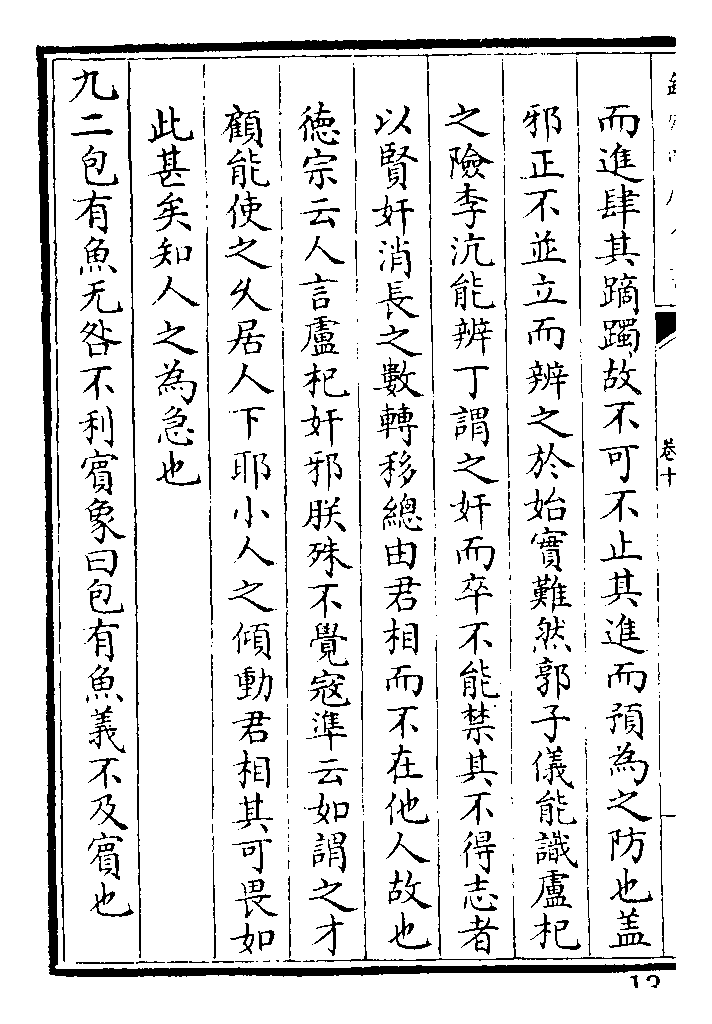 卷十
而進肆其蹢躅故不可不止其進而預為之防也盖
邪正不並立而辨之於始實難然郭子儀能識盧杞
之險李沆能辨丁謂之奸而卒不能禁其不得志者
以賢奸消長之數轉移總由君相而不在他人故也
徳宗云人言盧杞奸邪朕殊不覺宼準云如謂之才
顧能使之乆居人下耶小人之傾動君相其可畏如
此甚矣知人之為急也
九二包有魚无咎不利賔象曰包有魚義不及賔也